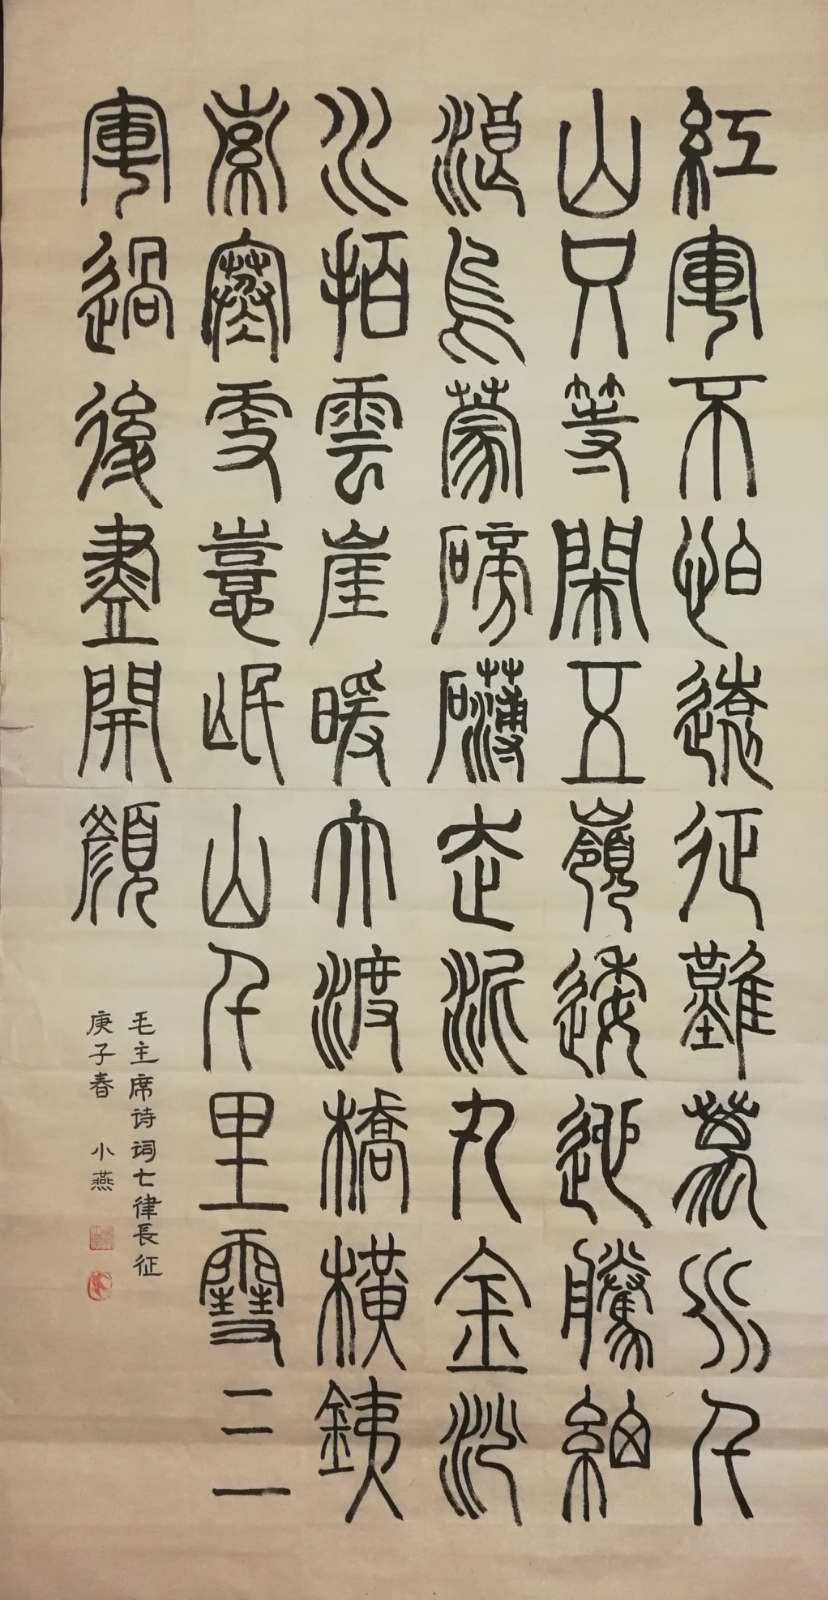 紅軍不怕遠征難萬水千
山只等閑五嶺逶迤騰細
浪烏蒙磅礴走泥丸金沙
水拍雲崖暖大渡橋橫鐵
索寒更憙岷山千里雪三
軍過後盡開顏
毛主席诗词七律長征
庚子春 小燕